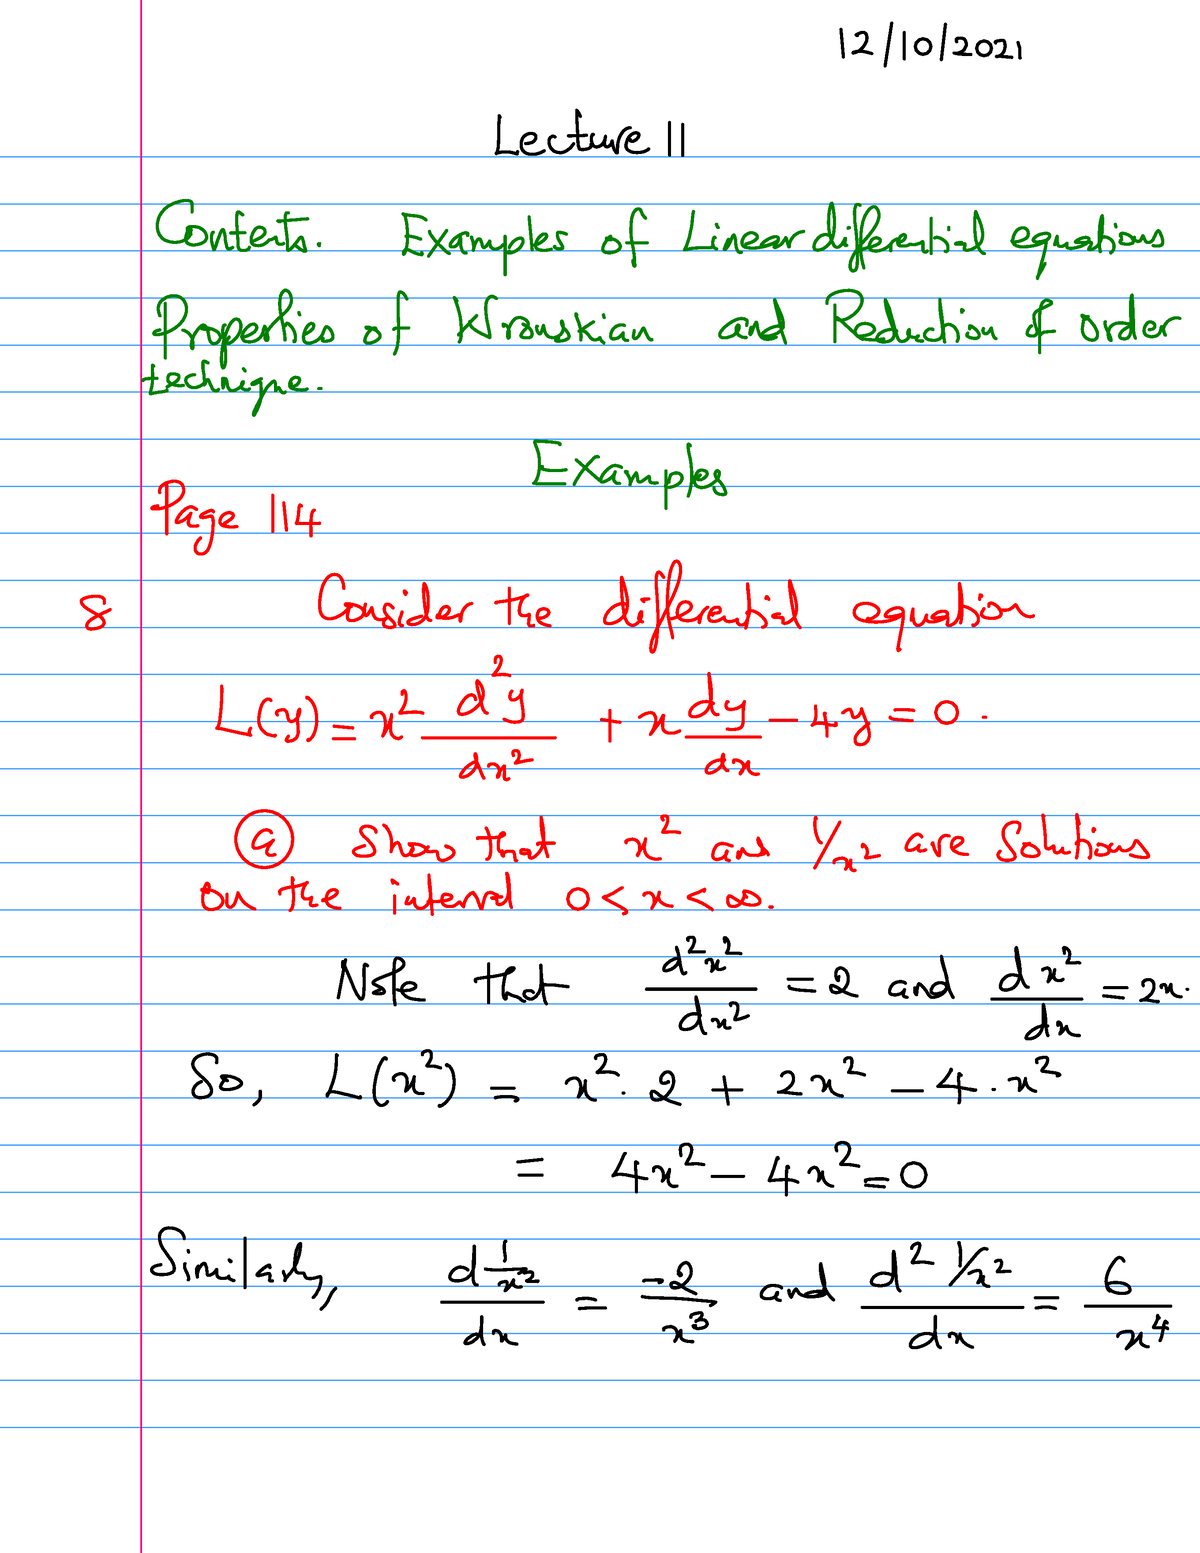 12/10/2021
Lecture 11
Contents. Examples of Linear differential equations
Properties of Wronskian and Reduction of order
technique.
Examples
Page 114
8 Consider the differential equation
L(y) = x² d²y/dx² + x dy/dx - 4y = 0.
(a) Show that x² and 1/x² are Solutions
on the interval 0 < x < ∞.
Note that d²x²/dx² = 2 and dx²/dx = 2x.
So, L(x²) = x². 2 + 2x² - 4.x²
= 4x² - 4x² = 0
Similarly, d 1/x²/dx = -2/x³ and d² 1/x²/dx = 6/x⁴